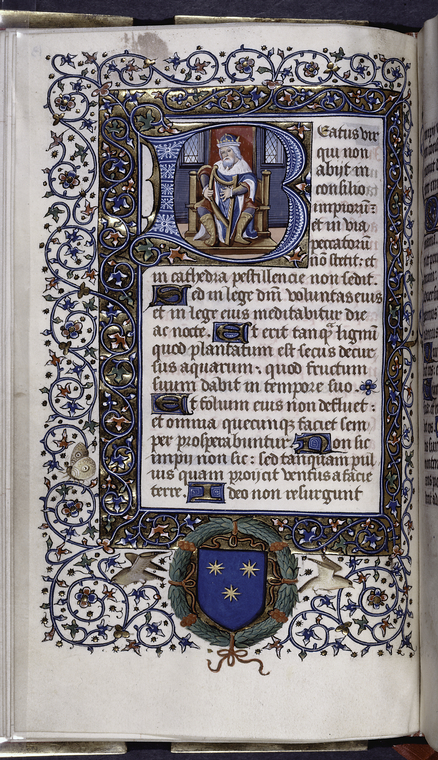 Beatus vir
qui non
abijt in
consilio
impiorū:
et in via
peccatorū
nō stetit: et
in cathedra pestillencie non sedit.
Sed in lege dnī voluntas eius
et in lege eius meditabitur die
ac nocte. Et erit tanq̄ lignū
quod plantatum est secus decur
sus aquarum: quod fructum
suum dabit in tempore suo.
Et folium eius non defluet:
et omnia quecunqȝ faciet sem
per prosperabuntur. Non sic
impij non sic: sed tanquam pul
uis quam proijcit ventus a facie
terre. Ideo non resurgunt